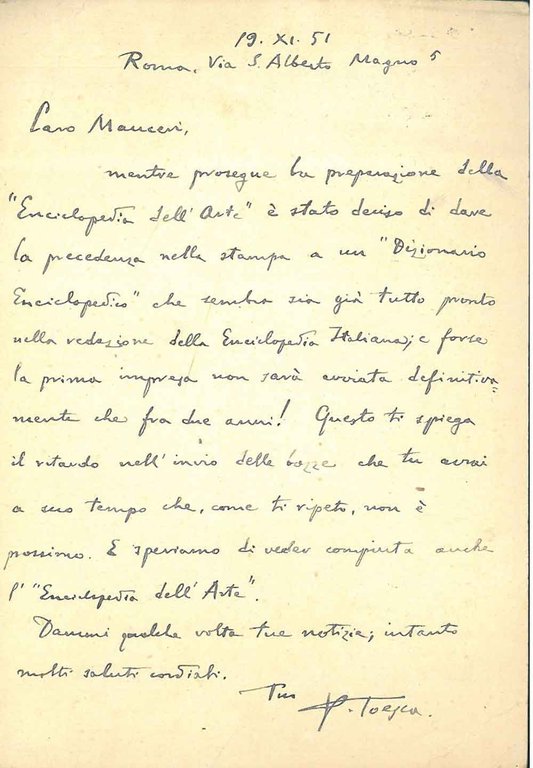 19. XI. 51
Roma, Via S. Alberto Magno 5
Caro Mauceri,
mentre prosegue la preparazione della
"Enciclopedia dell'Arte" è stato deciso di dare
la precedenza nella stampa a un "Dizionario
Enciclopedico" che sembra sia già tutto pronto
nella redazione della Enciclopedia Italiana; e forse
la prima impresa non sarà avviata definitiva=
mente che fra due anni! Questo ti spiega
il ritardo nell'invio delle bozze che tu avrai
a suo tempo che, come ti ripeto, non è
prossimo. E speriamo di veder compiuta anche
l'"Enciclopedia dell'Arte".
Dammi qualche volta tue notizie; intanto
molti saluti cordiali.
Tuo
P. Toesca.